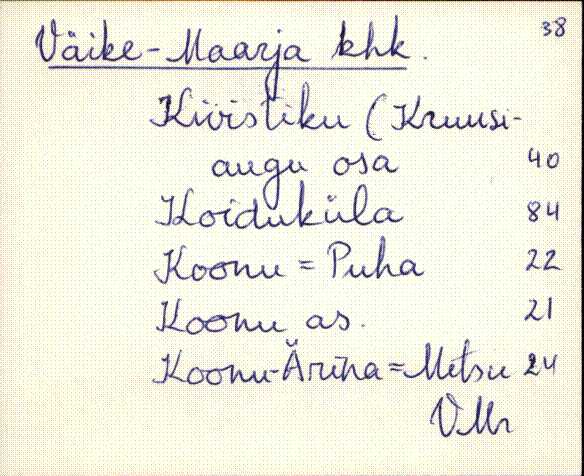 38
Väike-Maarja khk.
Kivistiku (Kruusi-
augu osa 40
Koiduküla 84
Koonu = Puha 22
Koonu as. 21
Koonu-Ärina = Metsu 24
VMr